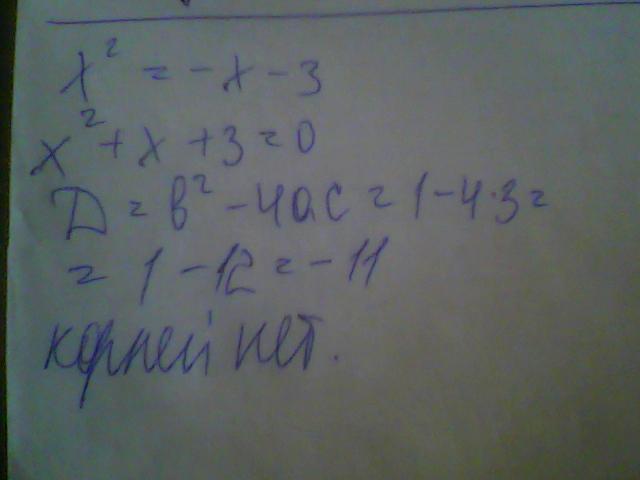 x² = -x - 3
x² + x + 3 = 0
Д = в² - 4ас = 1 - 4·3 =
= 1 - 12 = -11
корней нет.